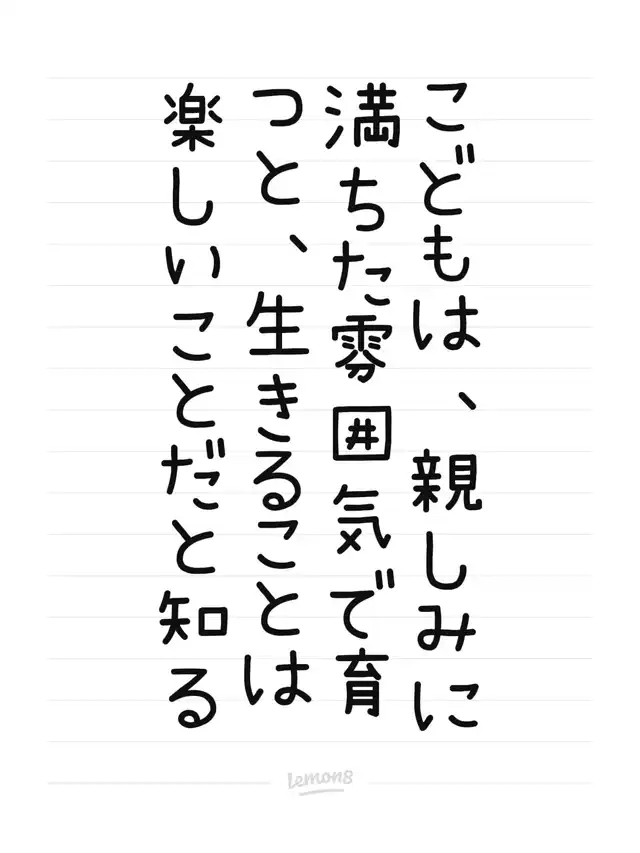 こどもは、親しみに
満ちた雰囲気で育
つと、生きることは
楽しいことだと知る
Lemon8